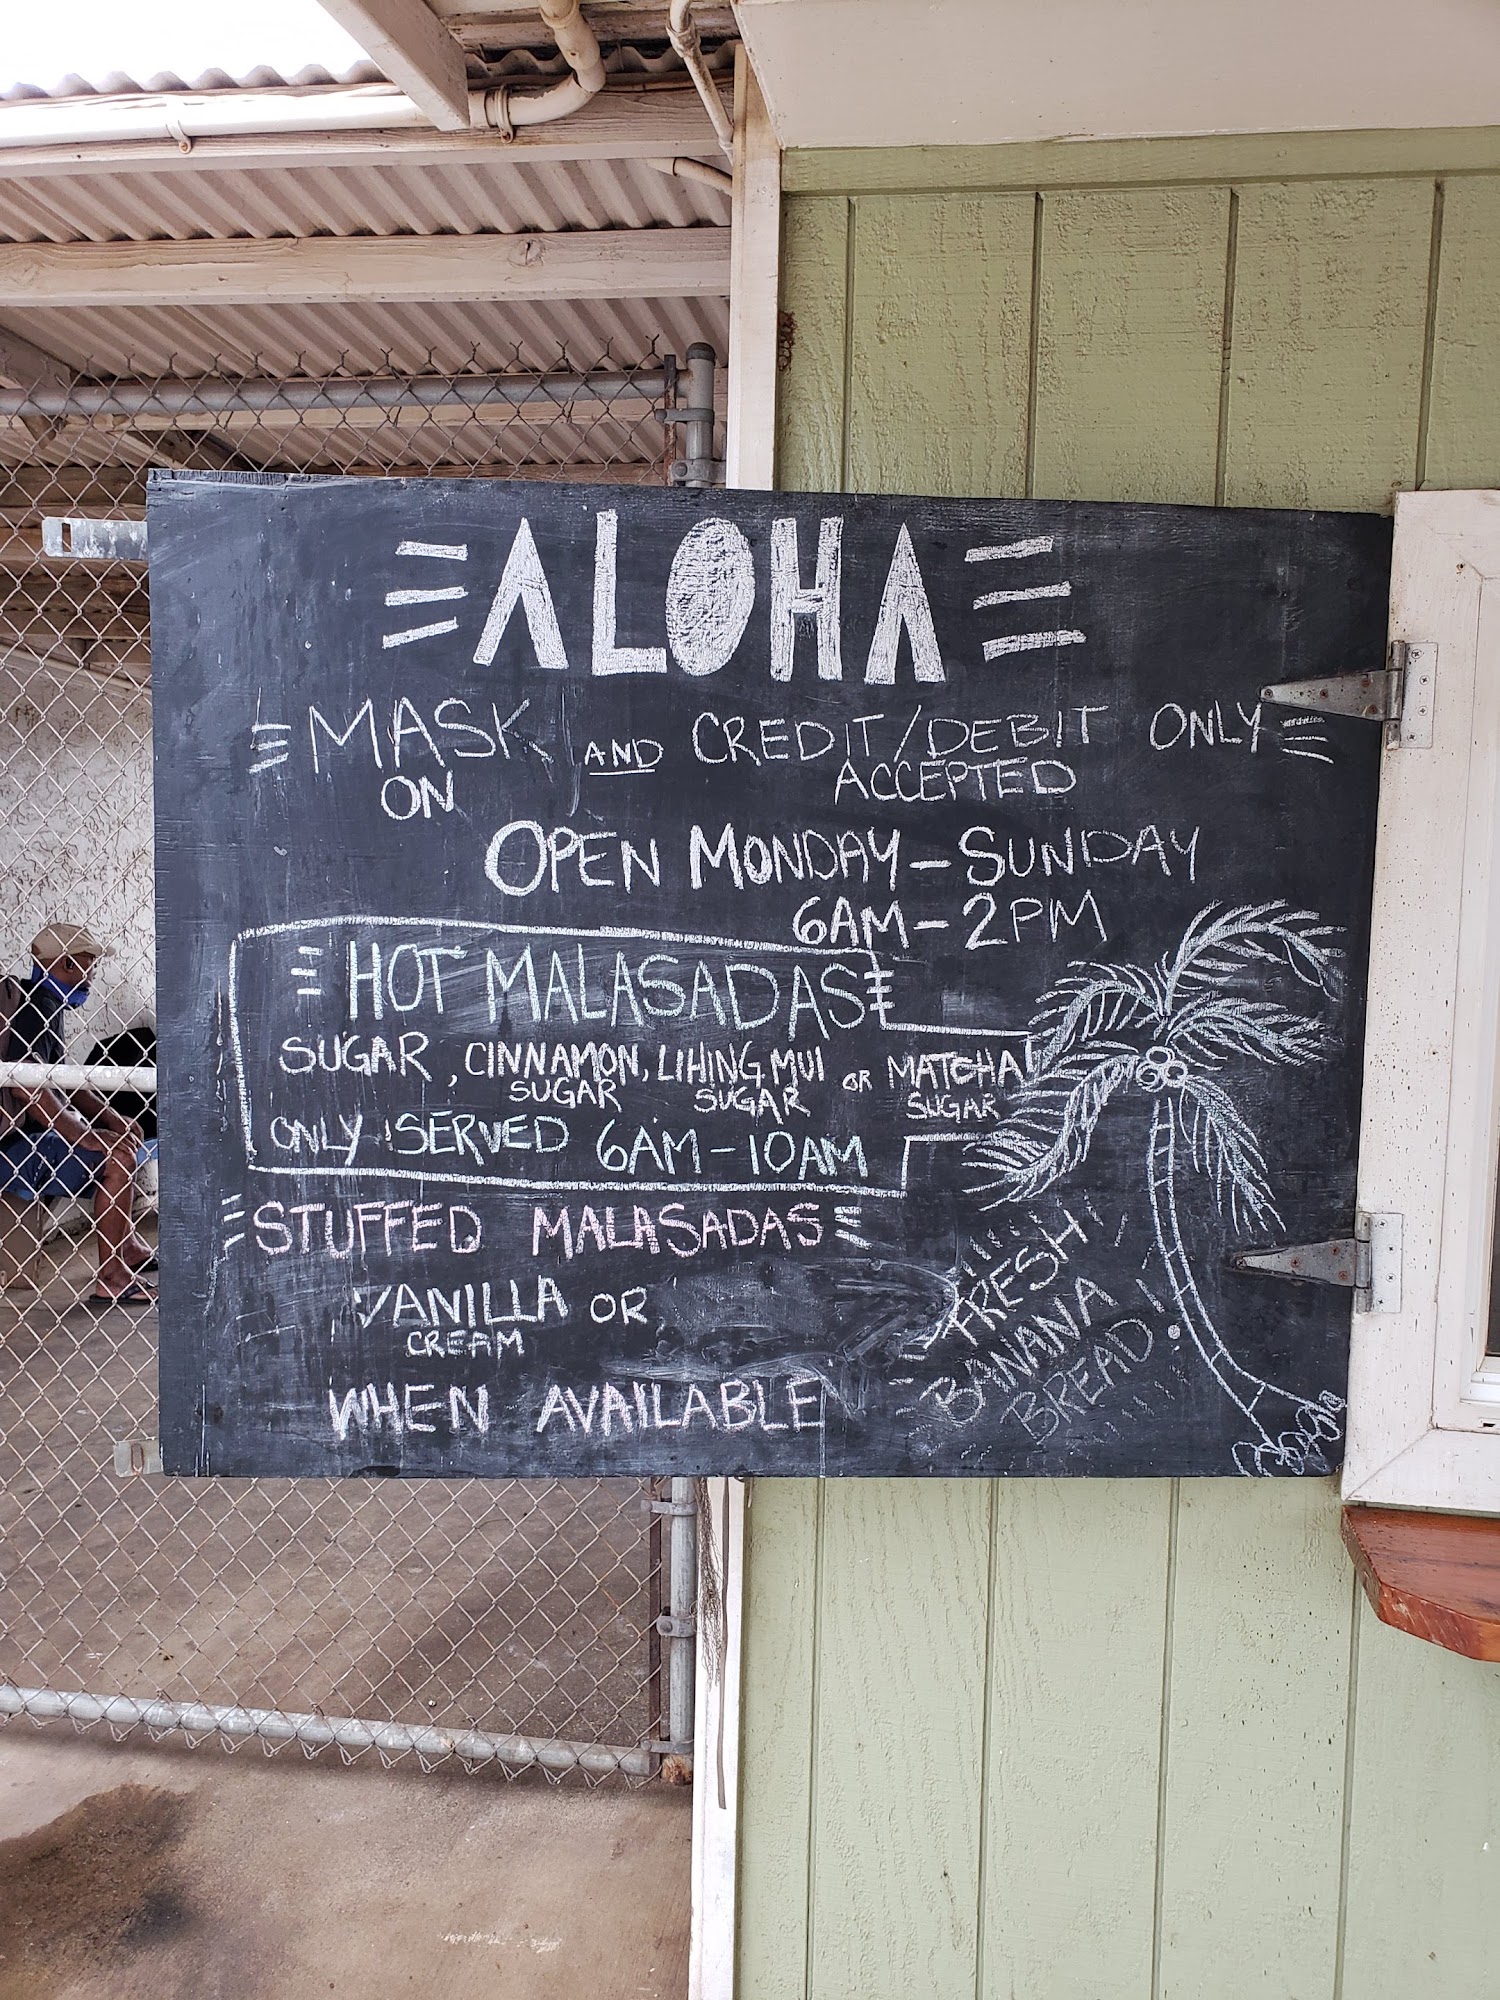 ALOHA
MASK ON AND CREDIT/DEBIT ONLY
ACCEPTED
OPEN MONDAY - SUNDAY
6AM - 2PM
HOT MALASADAS
SUGAR, CINNAMON SUGAR, LI HING MUI SUGAR OR MATCHA SUGAR
ONLY SERVED 6AM - 10AM
STUFFED MALASADAS
VANILLA CREAM OR
WHEN AVAILABLE
FRESH
BANANA
BREAD